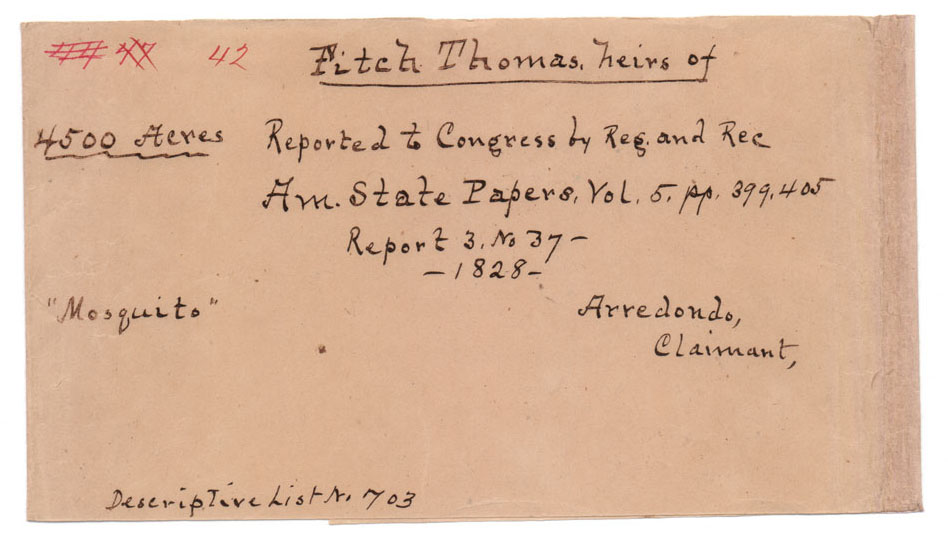 42 Fitch Thomas, heirs of
4500 Acres Reported to Congress by Reg. and Rec
Am. State Papers, Vol. 5, pp. 399, 405
Report 3, No 37 –
– 1828 –
"Mosquito" Arredondo,
Claimant,
Descriptive List N. 703